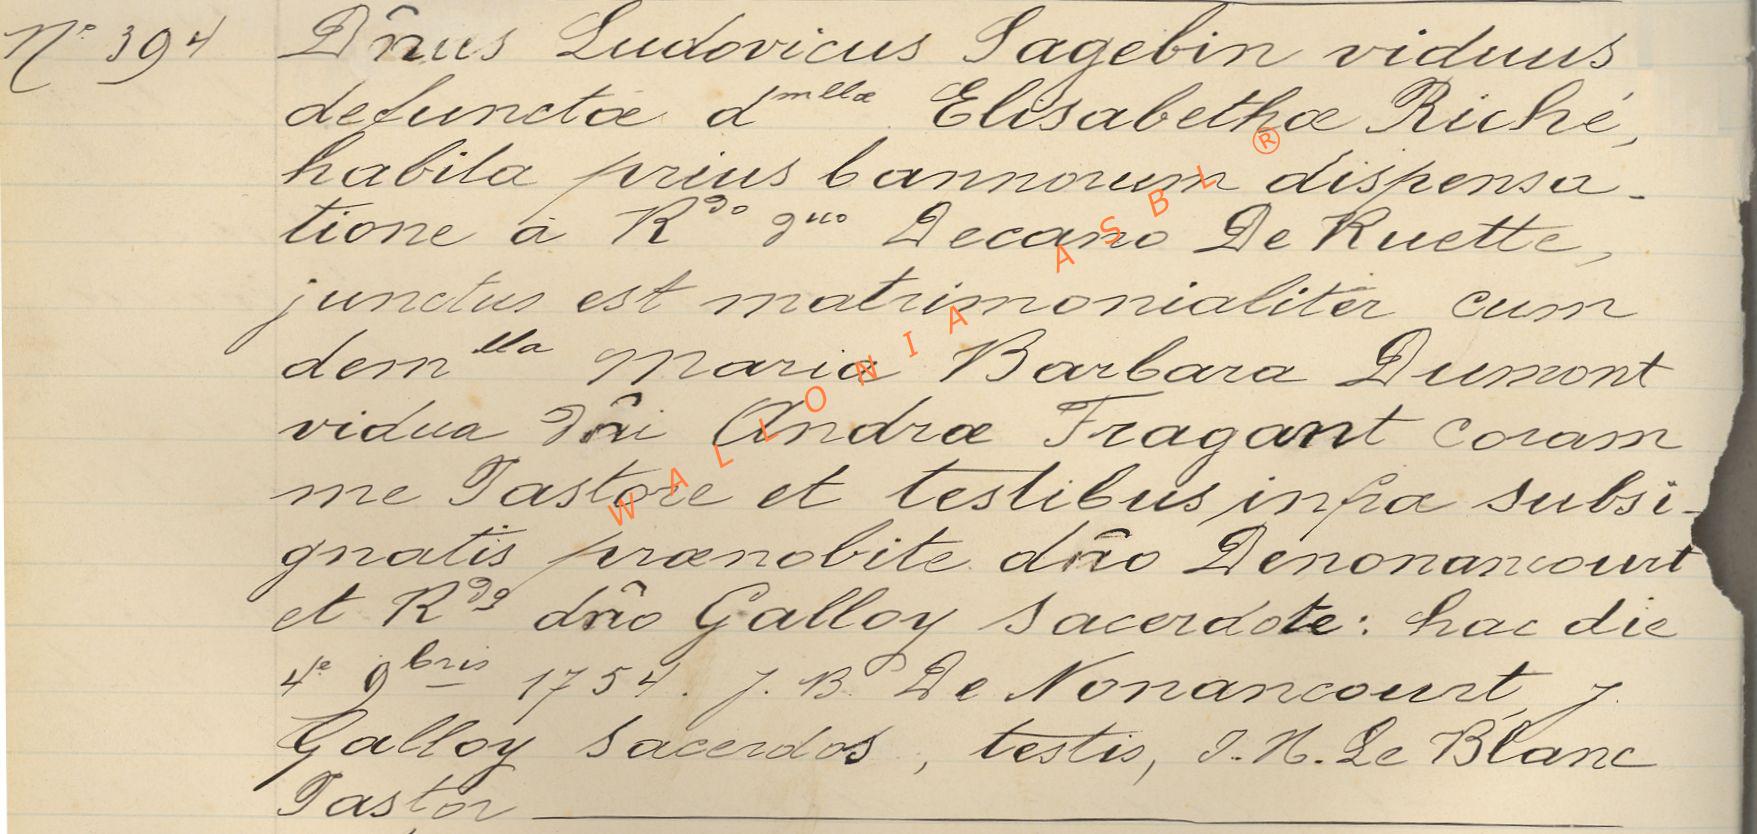 N° 394 Dn̂us Ludovicus Sagebin viduus
defunctæ d^mllæ Elisabethæ Riché,
habita prius bannorum dispensa-
tione à R^do d^no Decano De Ruette,
junctus est matrimonialiter cum
dem^lla Maria Barbara Dumont
vidua Dn̂i Andræ Fragant coram
me Pastore et testibus infra subsi-
gnatis prænobite dn̂o Denonancourt
et R^do dn̂o Galloy sacerdote: hac die
4^e 9^bris 1754. J. B. De Nonancourt, J.
Galloy sacerdos, testis, J. H. Le Blanc
Pastor
WALLONIA ASBL ®